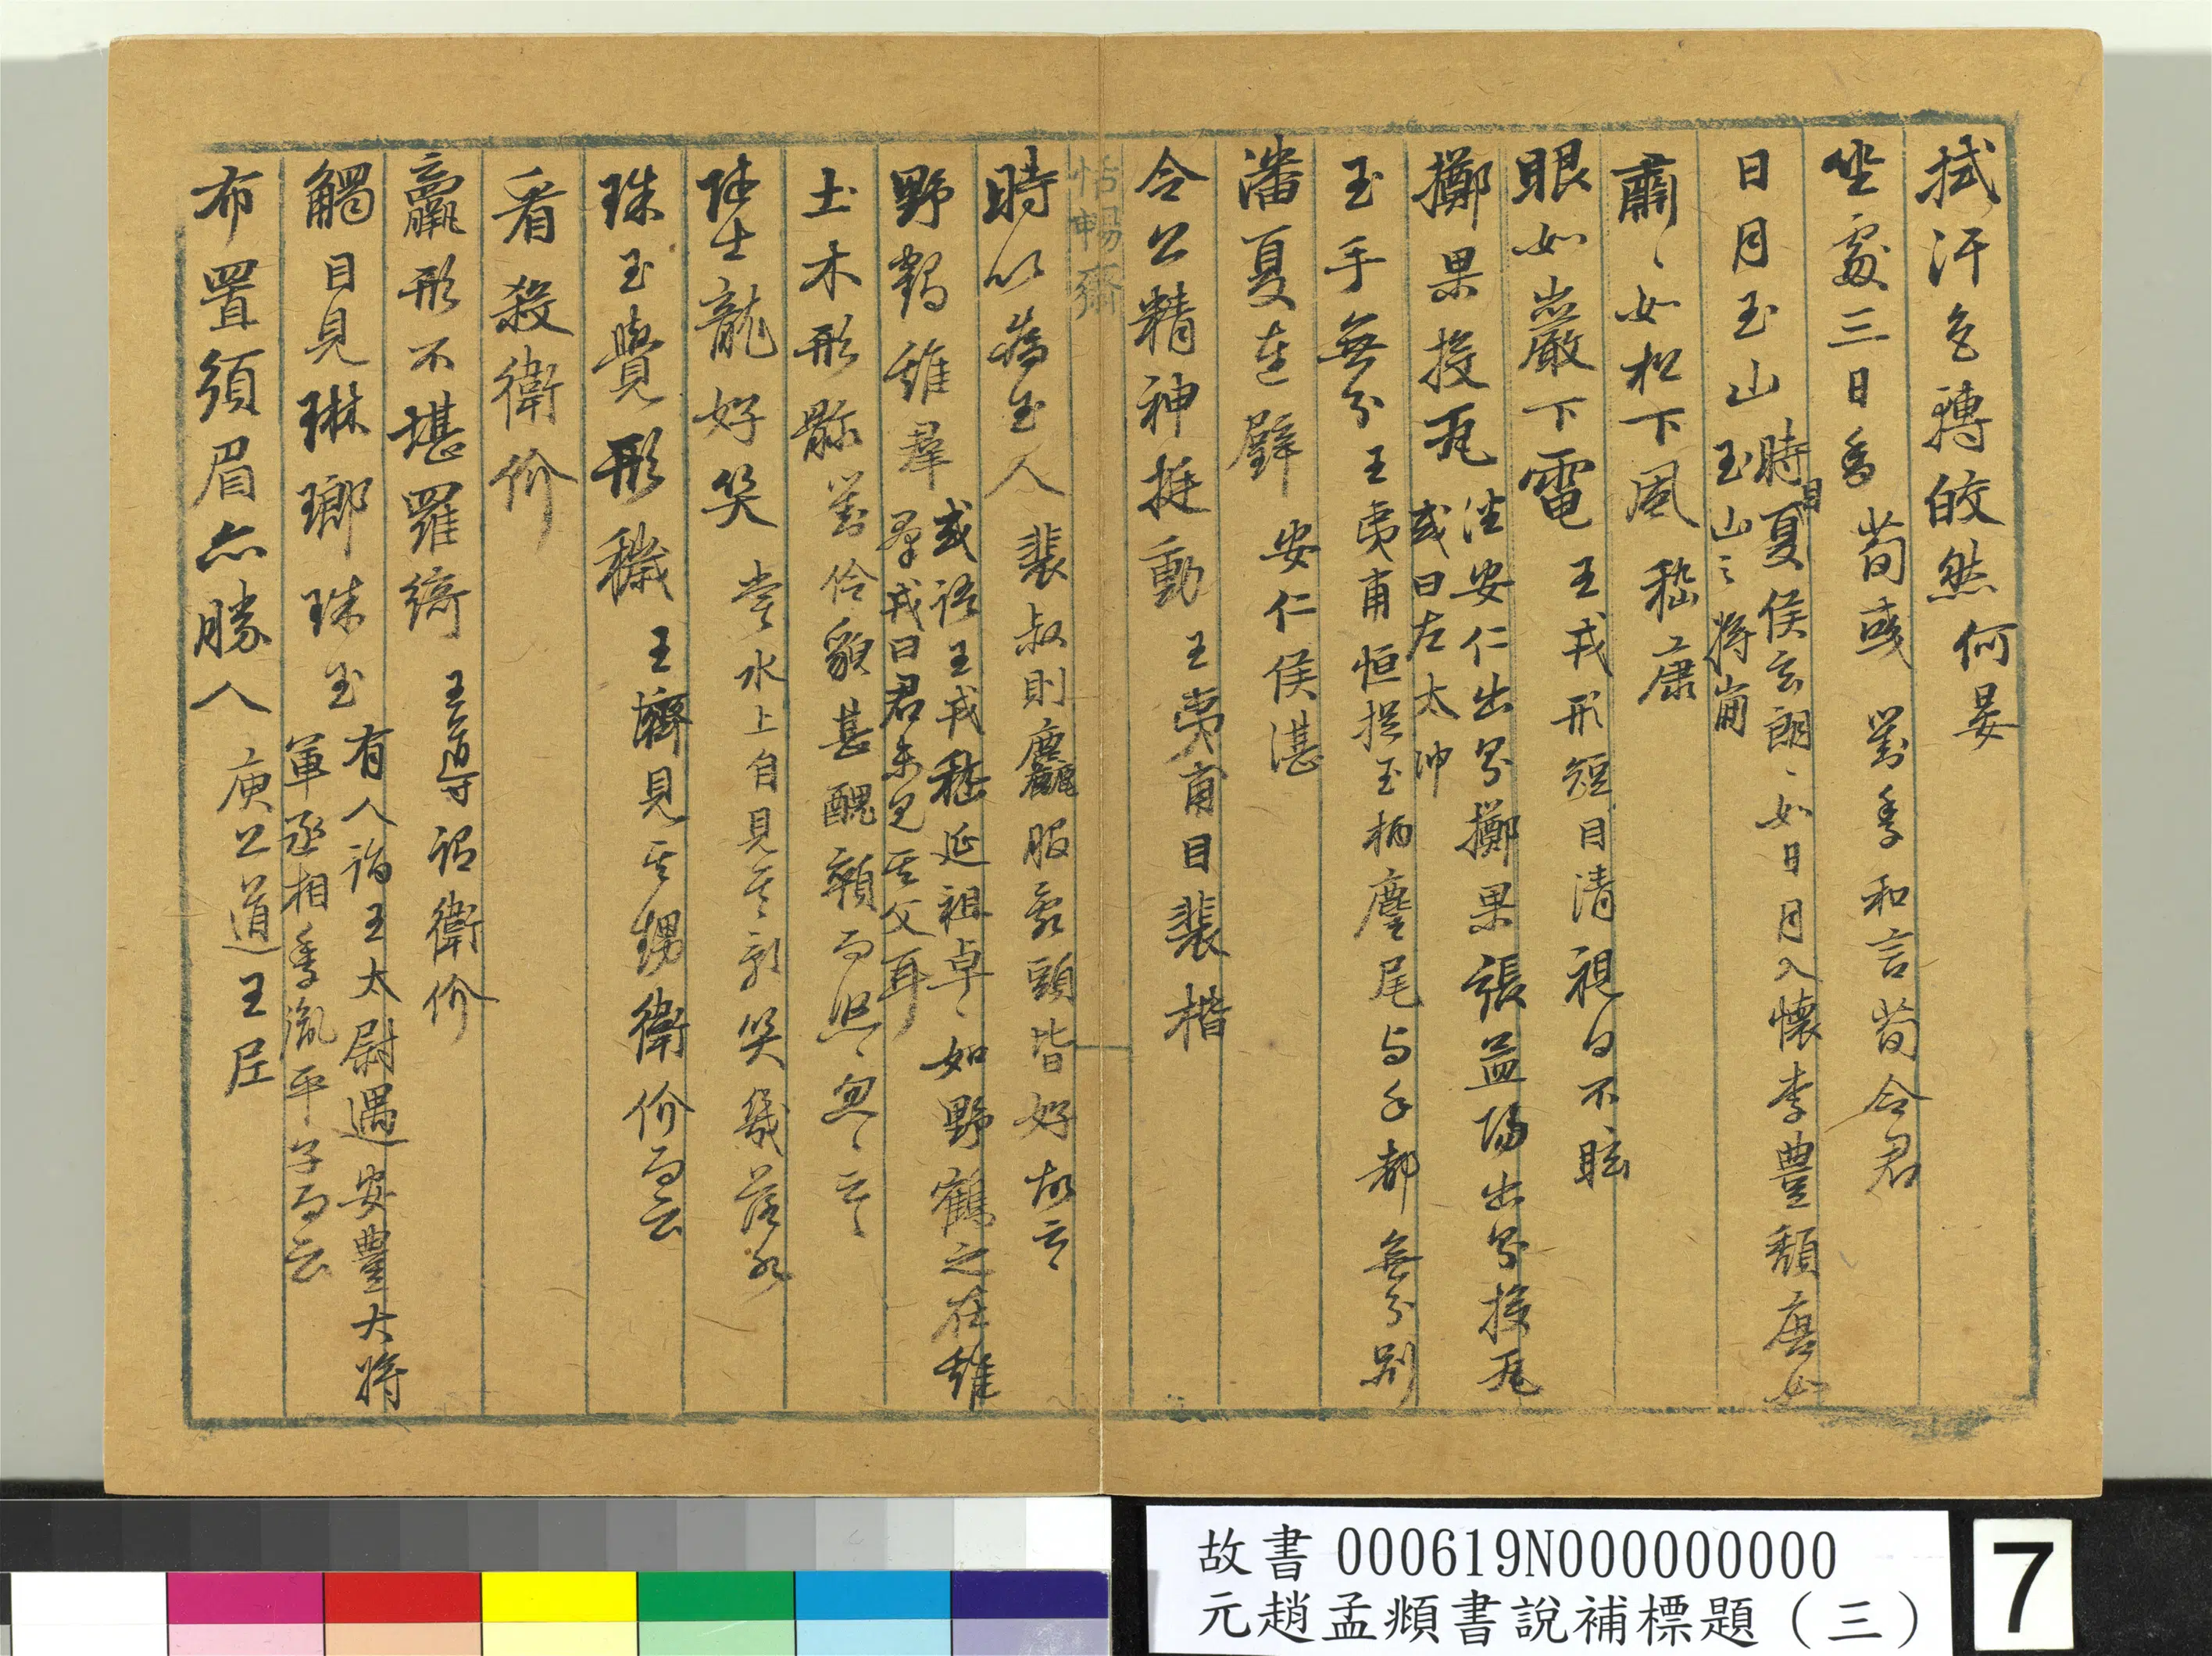 拭汗色轉皎然 何晏
坐處三日香 荀彧 劉季和言荀令君
日月玉山 時目夏侯玄朗〻如日月入懷李豐頹唐如
玉山之將崩
肅〻如松下風 嵇康
眼如巖下電 王戎形短目清視日不眩
擲果投瓦 潘安仁出界擲果張孟陽出界投瓦
或曰左太冲
玉手無分 王夷甫恒捉玉柄麈尾与手都無分別
潘夏連璧 安仁侯湛
令公精神挺動 王夷甫目裴楷
恬暢齋
時以為玉人 裴叔則麤服亂頭皆好故云
野鶴雞羣 或語王戎嵇延祖卓〻如野鶴之在雞
羣戎曰君未見其父耳
土木形骸 劉伶貌甚醜顇而悠〻忽〻云〻
陸士龍好笑 嘗水上自見其影笑幾落水
珠玉覺形穢 王濟見其甥衛玠而云
看殺衛玠
羸形不堪羅綺 王導謂衛玠
觸目見琳瑯珠玉 有人詣王太尉遇安豐大將
軍丞相季胤平子而云
布置須眉亦勝人 庾公道王
故書 000619N000000000
元趙孟頫書說補標題（三）
7